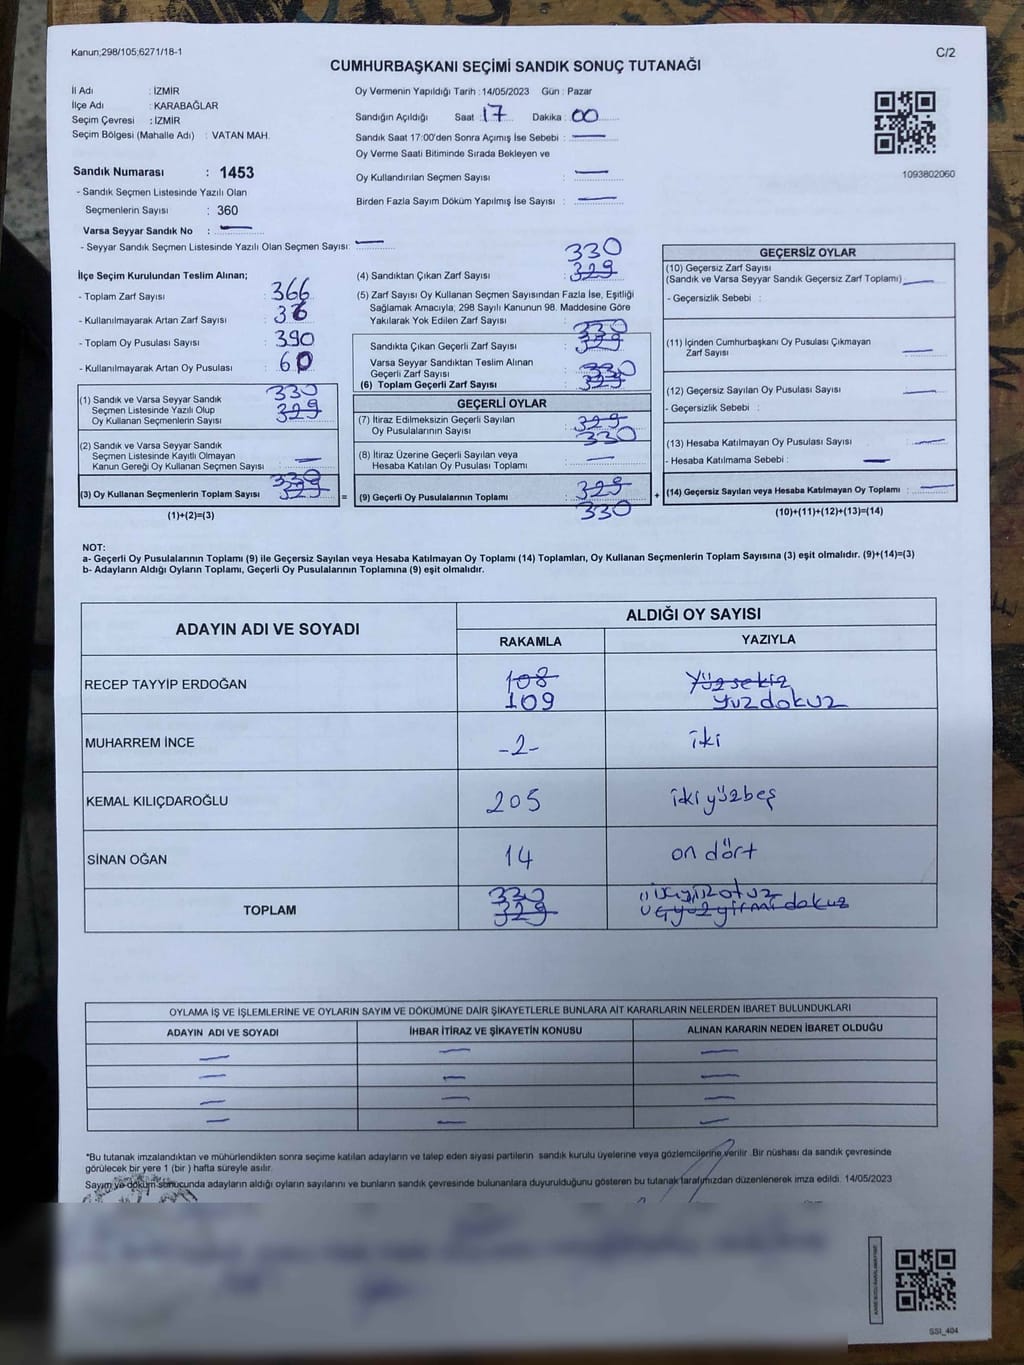 Kanun;298/105;6271/18-1
C/2
CUMHURBAŞKANI SEÇİMİ SANDIK SONUÇ TUTANAĞI
İl Adı : İZMİR
İlçe Adı : KARABAĞLAR
Seçim Çevresi : İZMİR
Seçim Bölgesi (Mahalle Adı) : VATAN MAH.
Oy Vermenin Yapıldığı Tarih : 14/05/2023 Gün : Pazar
Sandığın Açıldığı Saat : 17 Dakika : 00
Sandık Saat 17:00'den Sonra Açımış İse Sebebi : —
Oy Verme Saati Bitiminde Sırada Bekleyen ve
Oy Kullandırılan Seçmen Sayısı : —
Birden Fazla Sayım Döküm Yapılmış İse Sayısı : —
1093802060
Sandık Numarası : 1453
- Sandık Seçmen Listesinde Yazılı Olan
Seçmenlerin Sayısı : 360
Varsa Seyyar Sandık No : —
- Seyyar Sandık Seçmen Listesinde Yazılı Olan Seçmen Sayısı: —
İlçe Seçim Kurulundan Teslim Alınan;
- Toplam Zarf Sayısı : 366
- Kullanılmayarak Artan Zarf Sayısı : 36
- Toplam Oy Pusulası Sayısı : 390
- Kullanılmayarak Artan Oy Pusulası : 60
330
(1) Sandık ve Varsa Seyyar Sandık
Seçmen Listesinde Yazılı Olup 329
Oy Kullanan Seçmenlerin Sayısı :
(2) Sandık ve Varsa Seyyar Sandık
Seçmen Listesinde Kayıtlı Olmayan
Kanun Gereği Oy Kullanan Seçmen Sayısı : —
330
(3) Oy Kullanan Seçmenlerin Toplam Sayısı : 329
(1)+(2)=(3)
330
(4) Sandıktan Çıkan Zarf Sayısı : 329
(5) Zarf Sayısı Oy Kullanan Seçmen Sayısından Fazla İse, Eşitliği
Sağlamak Amacıyla, 298 Sayılı Kanunun 98. Maddesine Göre
Yakılarak Yok Edilen Zarf Sayısı :
330
Sandıkta Çıkan Geçerli Zarf Sayısı : 329
Varsa Seyyar Sandıktan Teslim Alınan
Geçerli Zarf Sayısı : 330
(6) Toplam Geçerli Zarf Sayısı : 329
GEÇERLİ OYLAR
(7) İtiraz Edilmeksizin Geçerli Sayılan 329
Oy Pusulalarının Sayısı : 330
(8) İtiraz Üzerine Geçerli Sayılan veya
Hesaba Katılan Oy Pusulası Toplamı : —
= (9) Geçerli Oy Pusulalarının Toplamı : 329
330
GEÇERSİZ OYLAR
(10) Geçersiz Zarf Sayısı
(Sandık ve Varsa Seyyar Sandık Geçersiz Zarf Toplamı) : —
- Geçersizlik Sebebi :
(11) İçinden Cumhurbaşkanı Oy Pusulası Çıkmayan
Zarf Sayısı : —
(12) Geçersiz Sayılan Oy Pusulası Sayısı : —
- Geçersizlik Sebebi :
(13) Hesaba Katılmayan Oy Pusulası Sayısı : —
- Hesaba Katılmama Sebebi : —
+ (14) Geçersiz Sayılan veya Hesaba Katılmayan Oy Toplamı : —
(10)+(11)+(12)+(13)=(14)
NOT:
a- Geçerli Oy Pusulalarının Toplamı (9) ile Geçersiz Sayılan veya Hesaba Katılmayan Oy Toplamı (14) Toplamları, Oy Kullanan Seçmenlerin Toplam Sayısına (3) eşit olmalıdır. (9)+(14)=(3)
b- Adayların Aldığı Oyların Toplamı, Geçerli Oy Pusulalarının Toplamına (9) eşit olmalıdır.
ADAYIN ADI VE SOYADI
ALDIĞI OY SAYISI
RAKAMLA YAZIYLA
RECEP TAYYİP ERDOĞAN 108 Yüzsekiz
109 yuzdokuz
MUHARREM İNCE -2- iki
KEMAL KILIÇDAROĞLU 205 ikiyüzbeş
SİNAN OĞAN 14 on dört
330 üçyüzotuz
TOPLAM 329 üçyüzyirmidokuz
OYLAMA İŞ VE İŞLEMLERİNE VE OYLARIN SAYIM VE DÖKÜMÜNE DAİR ŞİKAYETLERLE BUNLARA AİT KARARLARIN NELERDEN İBARET BULUNDUKLARI
ADAYIN ADI VE SOYADI İHBAR İTİRAZ VE ŞİKAYETİN KONUSU ALINAN KARARIN NEDEN İBARET OLDUĞU
— — —
— — —
— — —
— — —
*Bu tutanak imzalandıktan ve mühürlendikten sonra seçime katılan adayların ve talep eden siyasi partilerin sandık kurulu üyelerine veya gözlemcilerine verilir. Bir nüshası da sandık çevresinde
görülecek bir yere 1 (bir ) hafta süreyle asılır.
Sayım ve döküm sonucunda adayların aldığı oyların sayılarını ve bunların sandık çevresinde bulunanlara duyurulduğunu gösteren bu tutanak tarafımızdan düzenlenerek imza edildi. 14/05/2023
SSI_404